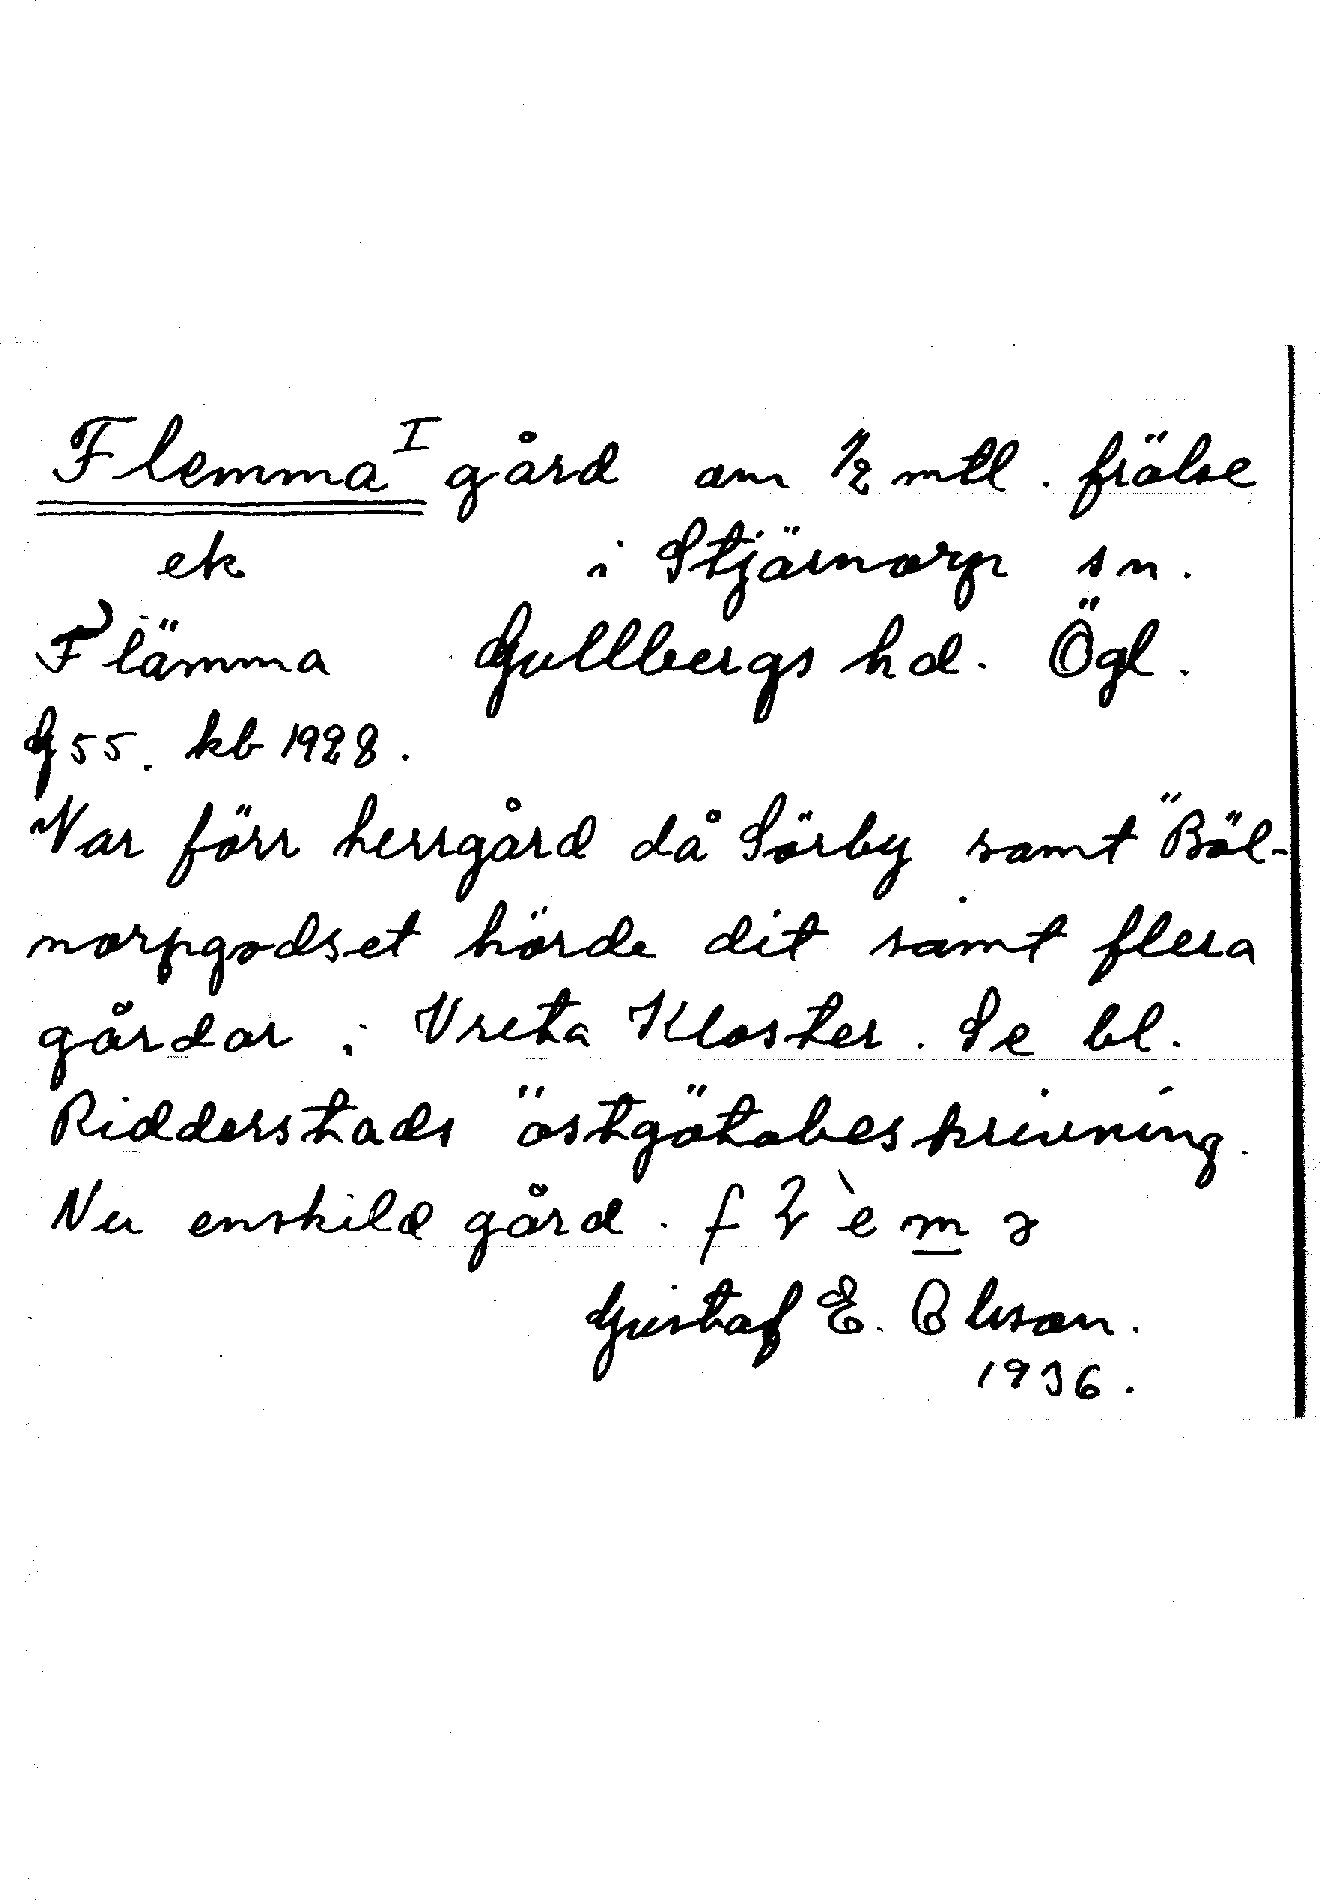 Flemma I gård om 1/2 mtl. frälse
ek i Stjärnorp sn.
Flämma Gullbergs hd. Ögl.
G 55. kb 1928.
Var förr herrgård då Sörby samt Böl-
norpgodset hörde dit samt flera
gårdar i Vreta Kloster. Se bl.
Ridderstads östgötabeskrivning.
Nu enskild gård. f
Gustaf E. Olsson.
1936.